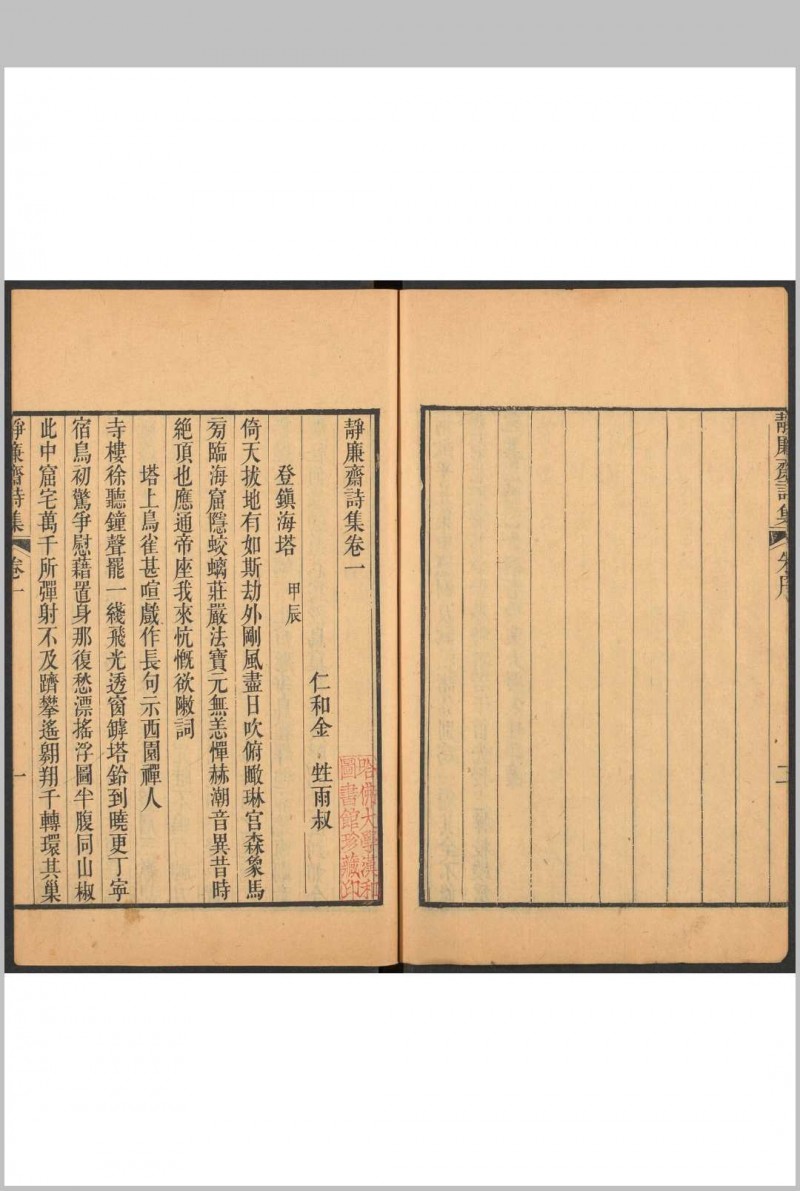 靜廉齋詩集
朱序
二
靜廉齋詩集卷一
仁和金 甡雨叔
登鎮海塔 甲辰
倚天拔地有如斯劫外剛風盡日吹俯瞰琳宫森象馬
旁臨海窟隱蛟螭莊嚴法寶元無恙憚赫潮音異昔時
絶頂也應通帝座我來忼慨欲敶詞
塔上鳥雀甚喧戲作長句示西園禪人
寺樓徐聽鐘聲罷一綫飛光透窗罅塔鈴到曉更丁寧
宿鳥初驚爭慰藉置身那復愁漂搖浮圖半腹同山椒
此中窟宅萬千所彈射不及躋攀遙翺翔千轉環其巢
靜廉齋詩集
卷一
一
哈佛大學漢和
圖書館珍藏印